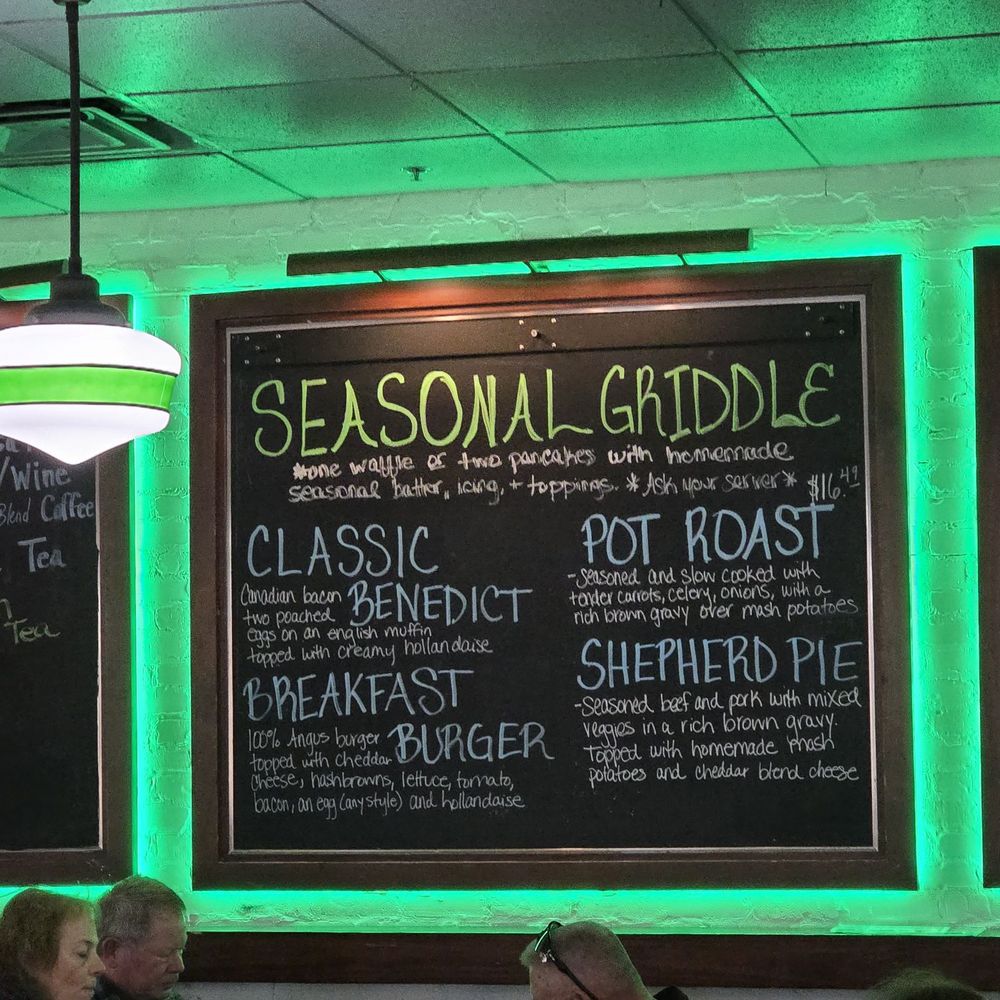 /Wine
Blend Coffee
Tea
Tea
SEASONAL GRIDDLE
*one waffle or two pancakes with homemade
seasonal batter, icing, + toppings. *Ask your server* $16.49
CLASSIC
BENEDICT
Canadian bacon
two poached
eggs on an english muffin
topped with creamy hollandaise
BREAKFAST
BURGER
100% Angus burger
topped with cheddar
cheese, hashbrowns, lettuce, tomato,
bacon, an egg (any style) and hollandaise
POT ROAST
-seasoned and slow cooked with
tender carrots, celery, onions, with a
rich brown gravy over mash potatoes
SHEPHERD PIE
-Seasoned beef and pork with mixed
veggies in a rich brown gravy.
Topped with homemade mash
potatoes and cheddar blend cheese